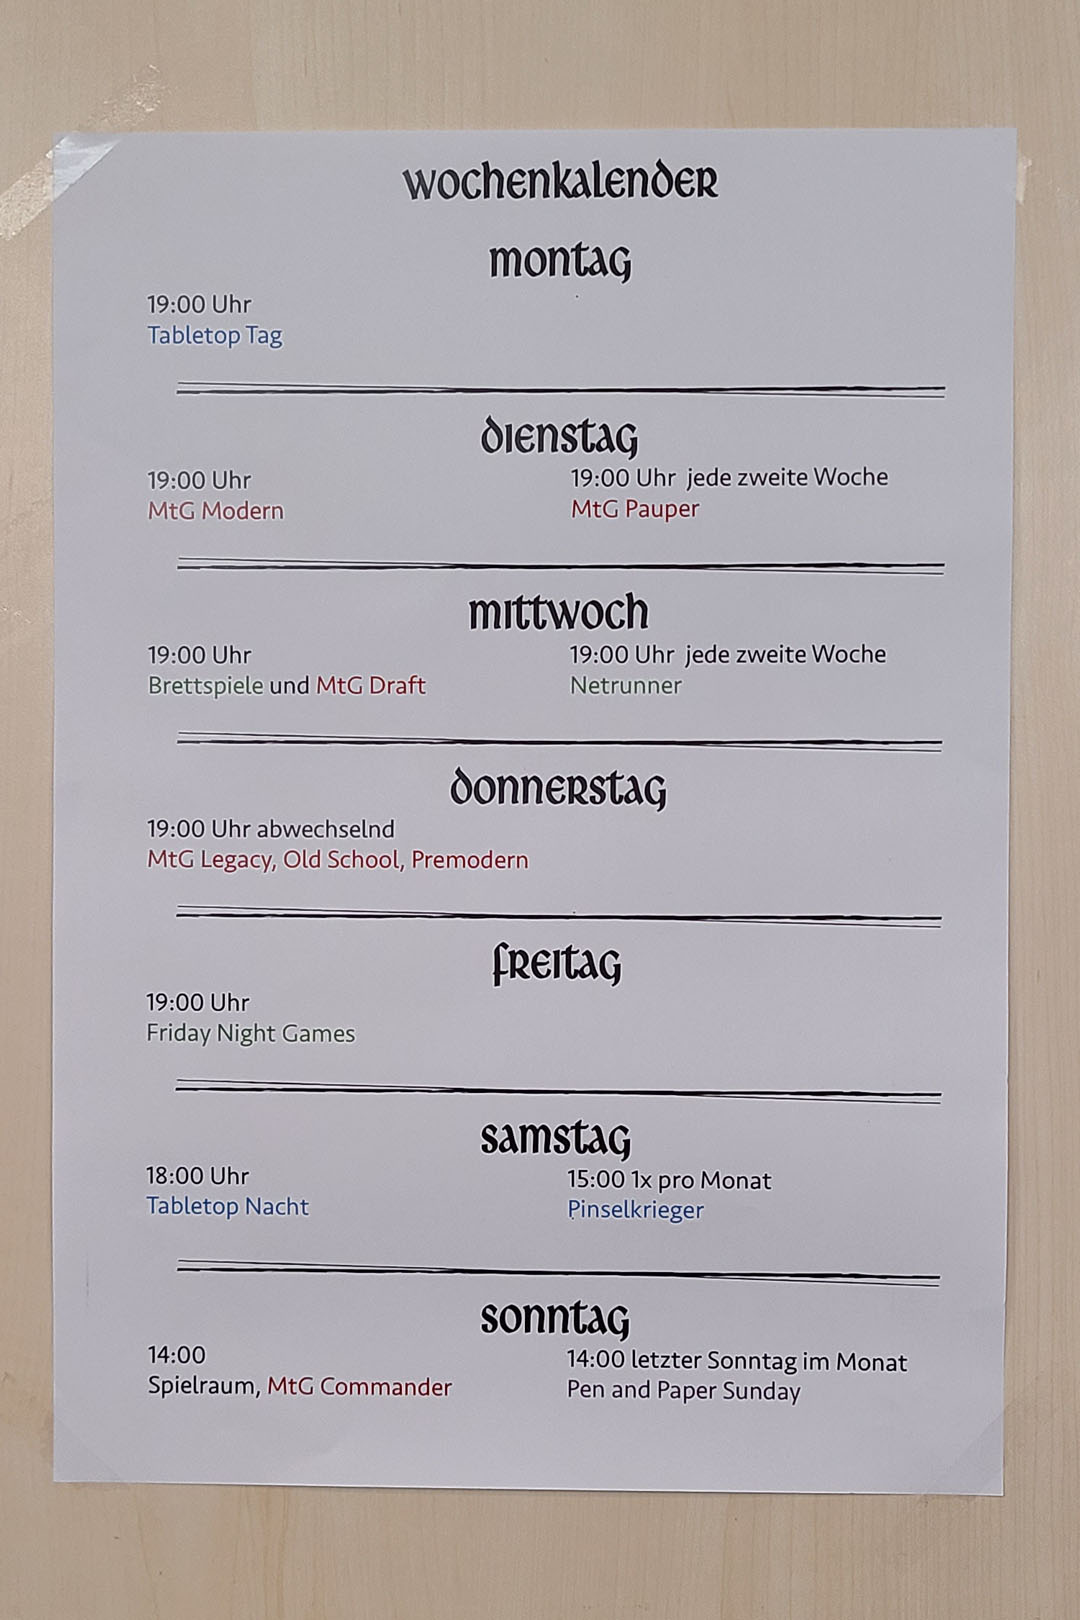 Wochenkalender
Montag
19:00 Uhr
Tabletop Tag
Dienstag
19:00 Uhr
MtG Modern
19:00 Uhr jede zweite Woche
MtG Pauper
Mittwoch
19:00 Uhr
Brettspiele und MtG Draft
19:00 Uhr jede zweite Woche
Netrunner
Donnerstag
19:00 Uhr abwechselnd
MtG Legacy, Old School, Premodern
Freitag
19:00 Uhr
Friday Night Games
Samstag
18:00 Uhr
Tabletop Nacht
15:00 1x pro Monat
Pinselkrieger
Sonntag
14:00
Spielraum, MtG Commander
14:00 letzter Sonntag im Monat
Pen and Paper Sunday